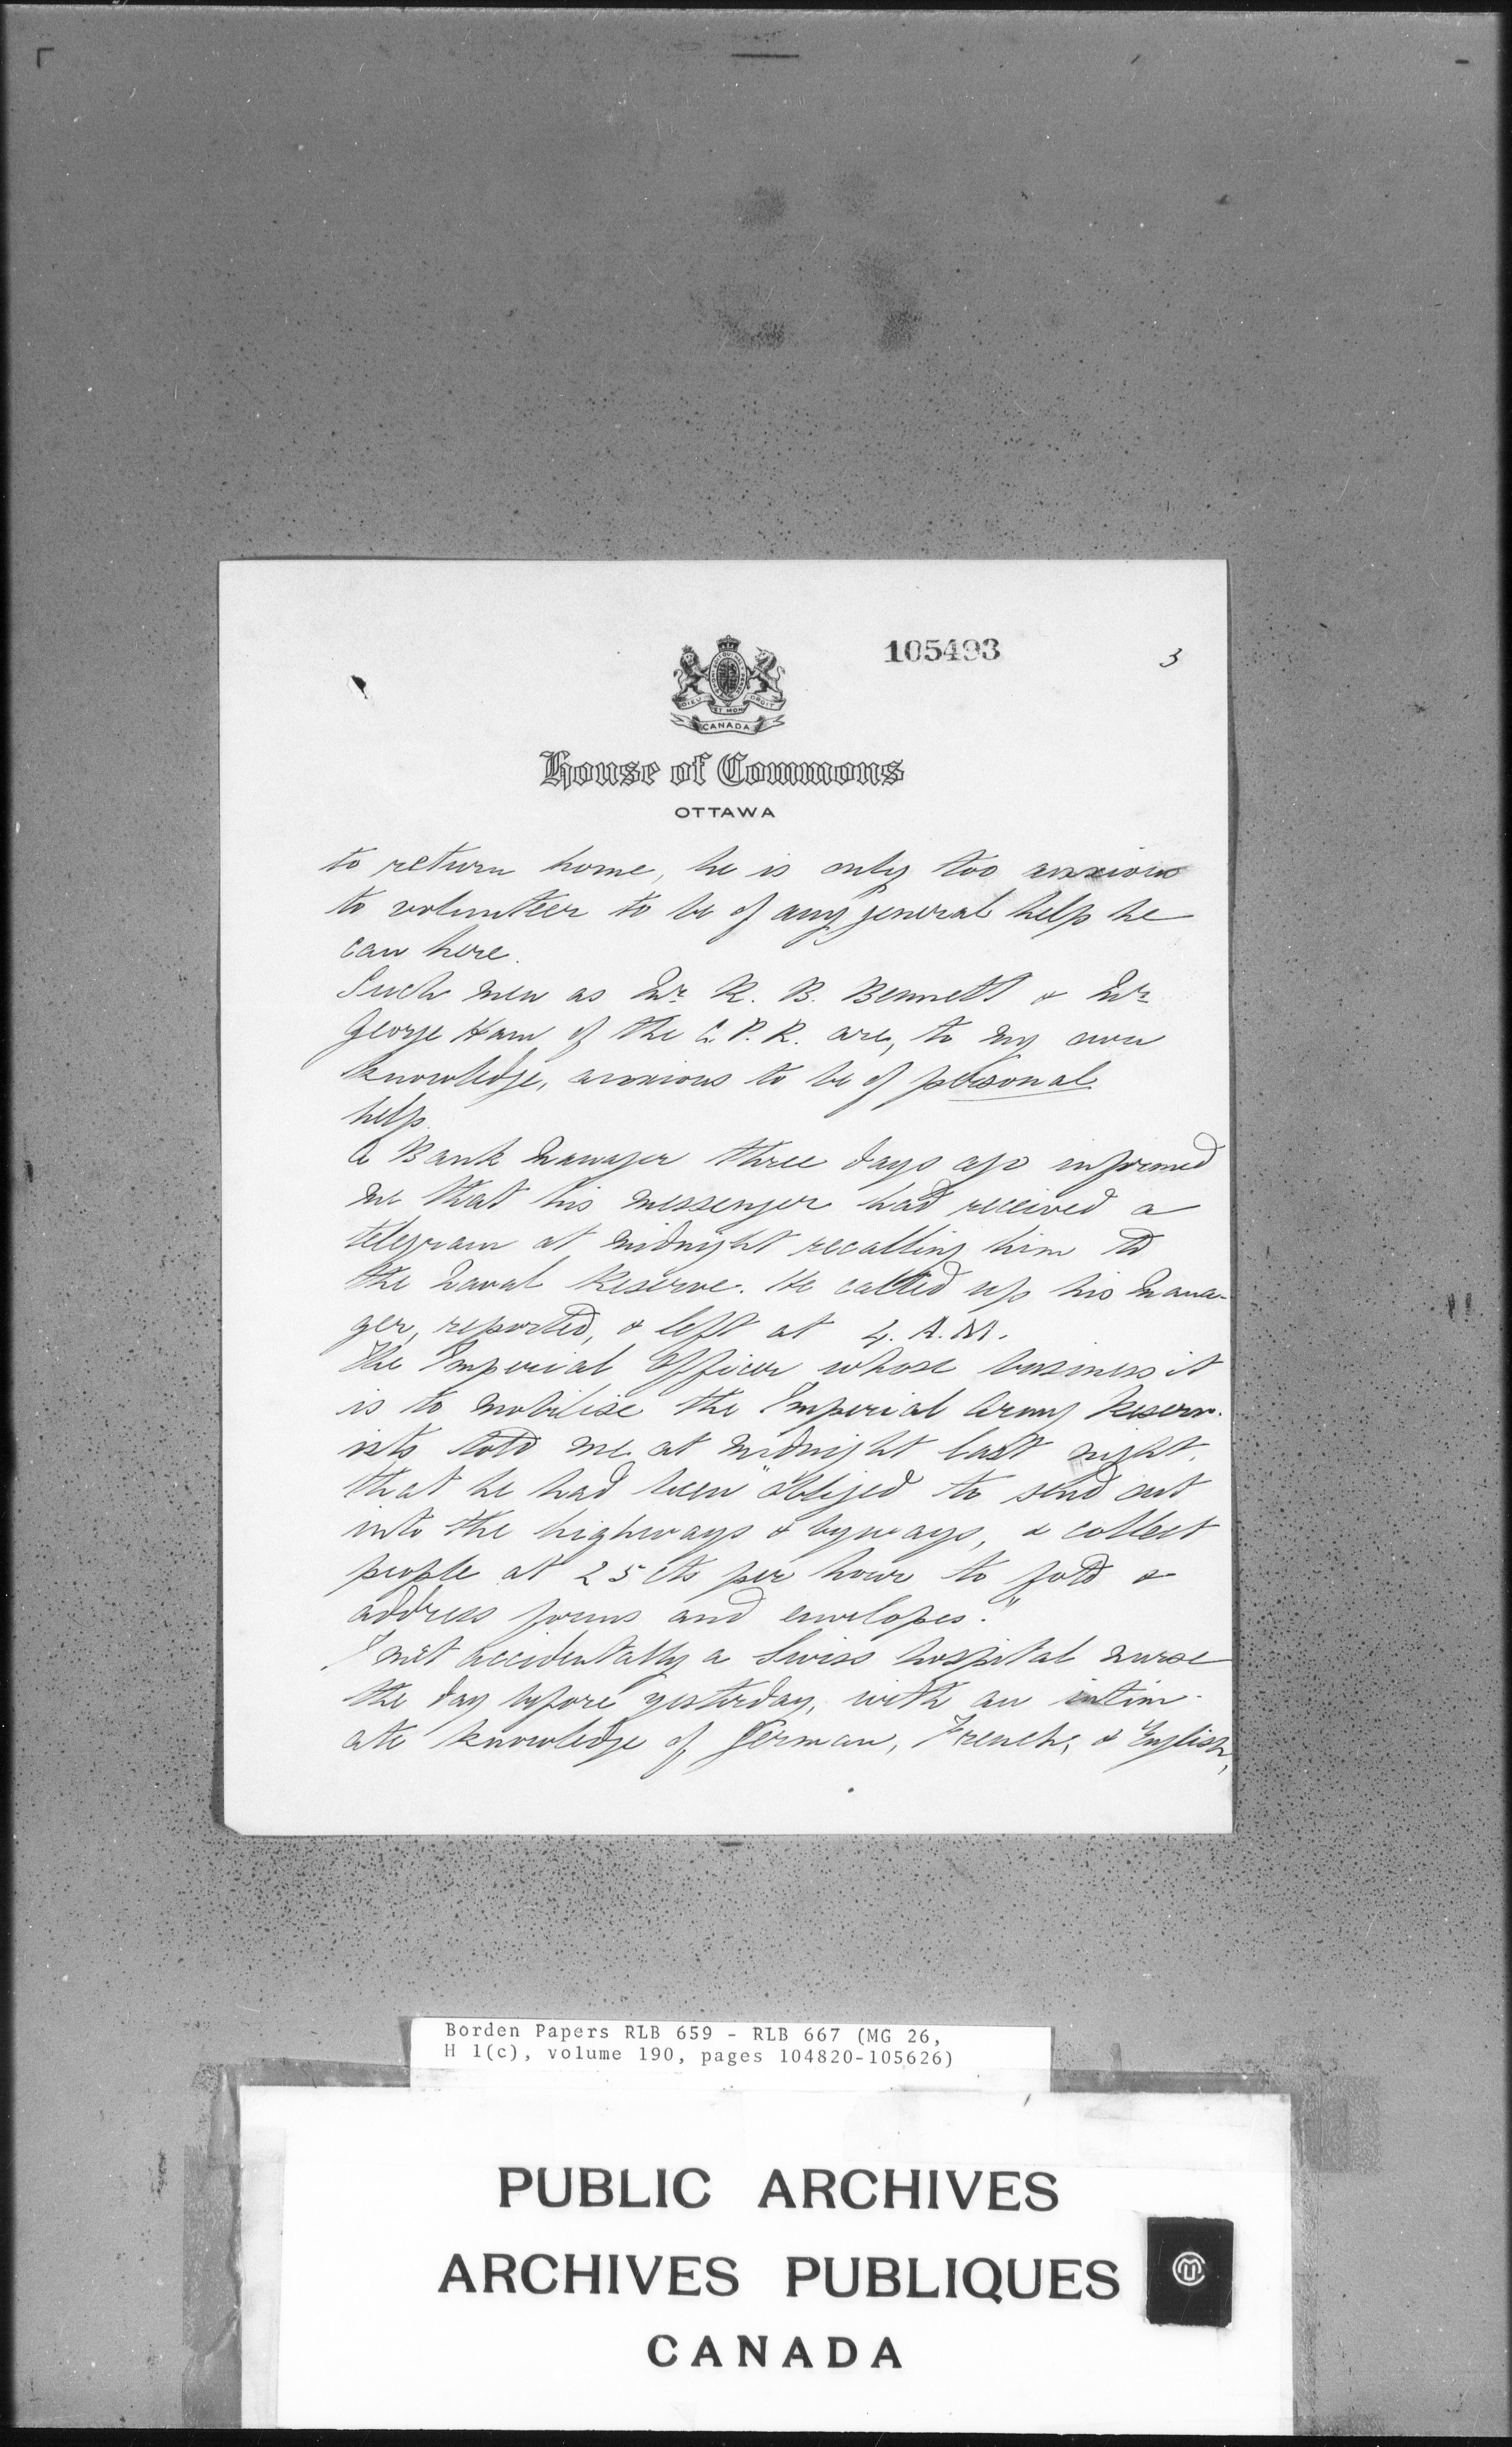 105493
3
DIEU ET MON DROIT
CANADA
House of Commons
OTTAWA
to return home, he is only too anxious
to volunteer to be of any general help he
can here.
Such men as Mr. R. B. Bennett & Mr.
George Ham of the C. P. R. are, to my own
knowledge, anxious to be of personal
help.
A Bank Manager three days ago informed
me that his messenger had received a
telegram at midnight recalling him to
the Naval Reserve. He called up his Mana-
ger, reported, & left at 4. A. M.
The Imperial Officer whose business it
is to mobilise the Imperial Army Reserv-
ists told me at midnight last night.
that he had been "obliged to send out
into the highways & byways, & collect
people at 25 cts per hour to fold &
address forms and envelopes."
I met accidentally a Swiss hospital nurse
the day before yesterday, with an intim-
ate knowledge of German, French, & English,
Borden Papers RLB 659 - RLB 667 (MG 26,
H 1(c), volume 190, pages 104820-105626)
PUBLIC ARCHIVES
ARCHIVES PUBLIQUES
CANADA